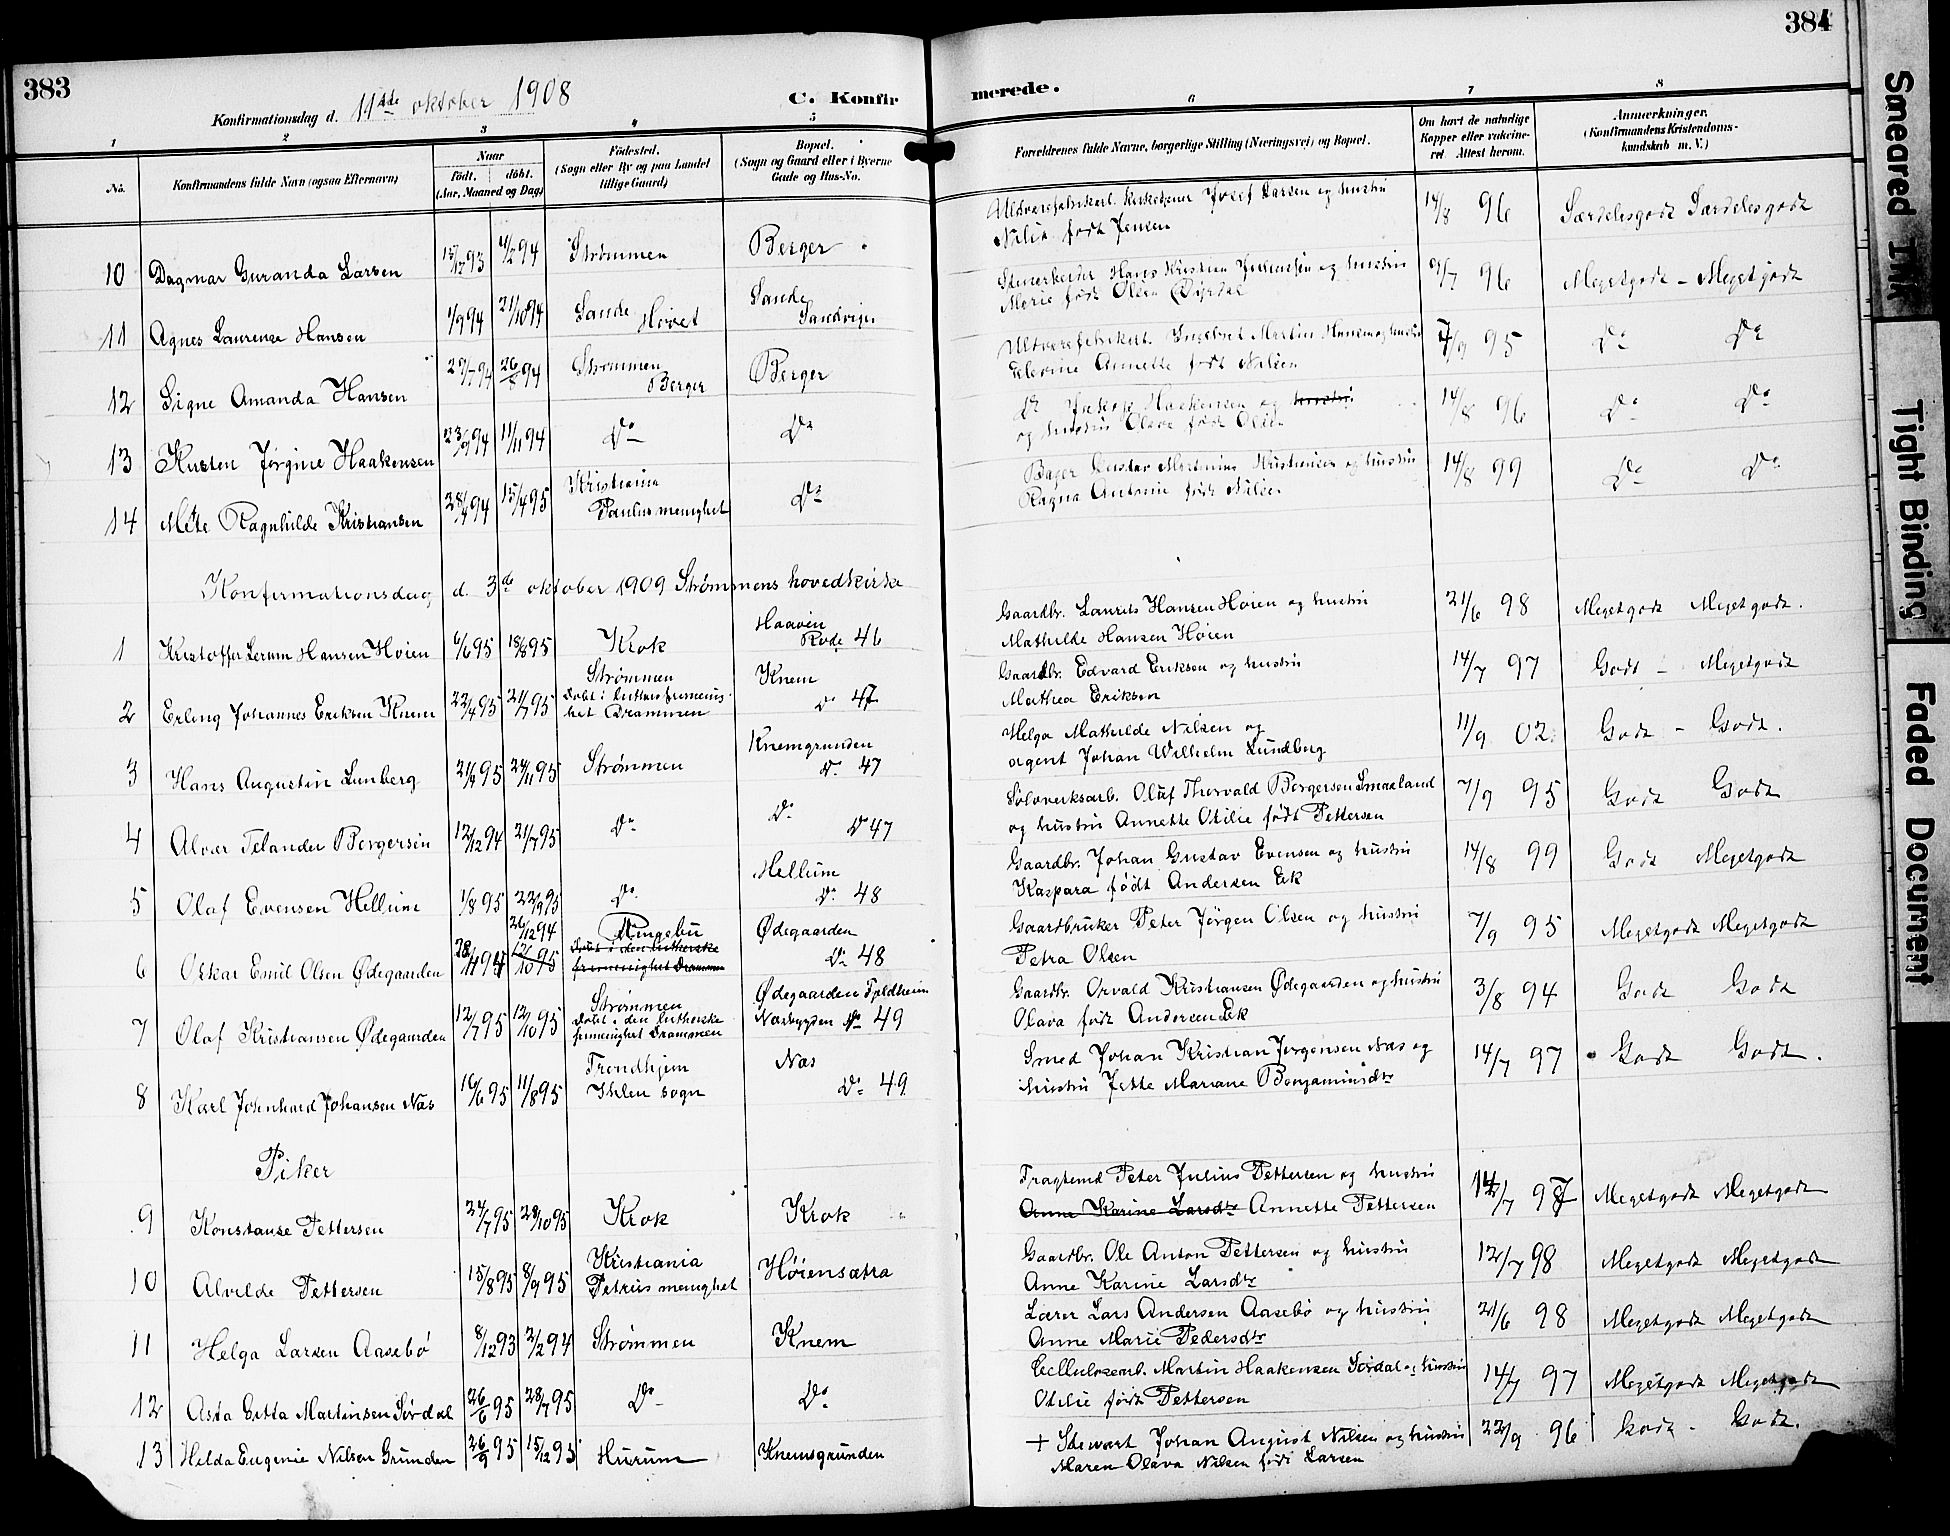 383
384
Konfirmationsdag d. 11te oktober 1908
C. Konfirmerede.
1 2 3 4 5 6 7 8
No.
Konfirmandens fulde Navn (ogsaa Efternavn)
Naar
født. døbt.
(Aar, Maaned og Dag)
Fødested.
(Sogn eller By og paa Landet
tillige Gaard)
Bopæl.
(Sogn og Gaard eller i Byerne
Gade og Hus-No.
Forældrenes fulde Navne, borgerlige Stilling (Næringsvej) og Bopæl.
Om havt de naturlige
Kopper eller vakcine-
ret Attest herom.
Anmærkninger.
(Konfirmandens Kristendoms-
kundskab m. V.)
10 Dagmar Guranda Larsen 15/12 93 4/2 94 Strømmen Berger
Josef Larsen og hustru
født Jensen 14/8 96 Særdelesgodt Særdelesgodt
11 Agnes Laurense Hansen 1/9 94 21/10 94 Sande Hovet Sande Sandvigen
Hans Kristian Johannesen og hustru
Marie født Olsen 9/7 96 Megetgodt - Megetgodt
12 Signe Amanda Hansen 29/7 94 26/8 94 Strømmen Berger Berger
Martin Hansen og hustru
Annette født Nilsen 7/9 95 Do Do
13 Kirsten Jørgine Haakensen 23/9 94 11/11 94 Do Do
Do Haakensen og hustru
og hustru Olava født Olsen 14/8 96 Do Do
14 Mete Ragnhilde Kristiansen 28/9 94 15/4 95 Kristiania Paulus menighet Do
Bager Gustav Martinius Kristiansen og hustru
Ragna Antonie født Nilsen 14/8 99 Do Do
Konfirmationsdag d. 3de oktober 1909 Strømmens hovedkirke
1 Kristoffer Lerum Hansen Høien 6/6 95 18/8 95 Krok Haaven Rode 46
Gaardbr. Laurits Hansen Høien og hustru
Mathilde Hansen Høien 21/6 98 Megetgodt Megetgodt.
2 Erling Johannes Eriksen Knem 22/4 95 21/7 95 Strømmen
Døbt i luthers frimenig-
het Drammen Knem Do 47
Gaardbr. Edvard Eriksen og hustru
Mathea Eriksen 14/7 97 Godt - Megetgodt
3 Hans Augustin Lunberg 21/9 95 24/11 95 Strømmen Knemgrunden Do 47
Helga Mathilde Nilsen og
agent Johan Wilhelm Lundberg 11/9 02. Godt - Godt.
4 Alvar Telander Bergersen 12/12 94 21/7 95 Do Do Do 47
Sølvverksarb. Oluf Thorvald Bergersen Smaaland
og hustru Annette Otilie født Pettersen 7/9 95 Godt Godt
5 Olaf Evensen Hellum 1/8 95 22/9 95 Do Hellum Do 48
Gaardbr. Johan Gustav Evensen og hustru
Kaspara født Andersen Ek 14/8 99 Godt Megetgodt
6 Oskar Emil Olsen Ødegaarden 28/11 94 26/12 94 12/10 95 Ringebu
Døbt i den lutherske
frimenighet Drammen Ødegaarden Do 48
Gaardbruker Peter Jørgen Olsen og hustru
Petra Olsen 7/9 95 Megetgodt Megetgodt
7 Olaf Kristiansen Ødegaarden 12/7 95 12/10 95 Strømmen
Døbt i den lutherske
frimenighet Drammen Ødegaarden Fjeldheim
Næsbygden Do 49
Gaardbr. Orvald Kristiansen Ødegaarden og hustru
Olava født Andersen Ek 3/8 94 Godt Godt
8 Karl Johnhard Johansen Næs 16/6 95 11/8 95 Trondhjem
Ihlen sogn Næs Do 49
Smed Johan Kristian Jørgensen Næs og
hustru Jette Mariane Benjaminsdtr 14/7 97 Godt Godt.
Piker
9 Konstanse Pettersen 24/7 95 28/10 95 Krok Krok
Fragtemd Peter Julius Pettersen og hustru
Anne Karine Larsdtr Annette Pettersen 14/7 97 Megetgodt Megetgodt
10 Alvilde Pettersen 15/8 95 8/9 95 Kristiania
Petrus menighet Høiensætra
Gaardbr. Ole Anton Pettersen og hustru
Anne Karine Larsdtr 12/7 98 Megetgodt Megetgodt
11 Helga Larsen Aasebø 8/12 93 2/2 94 Strømmen Knem
Lærer Lars Andersen Aasebø og hustru
Anne Marie Pedersdtr 21/6 98 Megetgodt Megetgodt
12 Asta Gitta Martinsen Sørdal 26/6 95 28/7 95 Do Do
Cellulosearb. Martin Haakensen Sørdal og hustru
Otilie født Pettersen 14/7 97 Megetgodt Megetgodt
13 Hilda Eugenie Nilsen Grunden 26/9 95 15/12 95 Hurum Knemsgrunden
+ Stewart Johan August Nilsen og hustru
Maren Olava Nilsen født Larsen 22/9 96 Godt - Godt.
Smeared Ink
Tight Binding
Faded Document